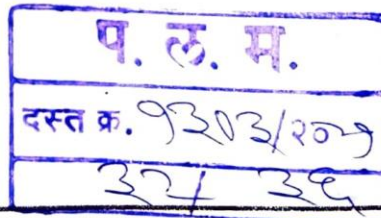 प. ल. म.
दस्त क्र. १३०३/
३२/ ३६